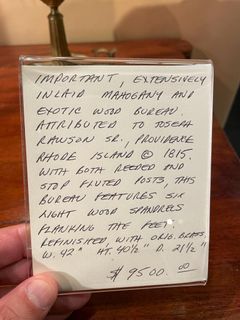 IMPORTANT, EXTENSIVELY
INLAID MAHOGANY AND
EXOTIC WOOD BUREAU.
ATTRIBUTED TO JOSEPH
RAWSON SR., PROVIDENCE
RHODE ISLAND © 1815.
WITH BOTH REEDED AND
STOP FLUTED POSTS, THIS
BUREAU FEATURES SIX
LIGHT WOOD SPANDRELS
FLANKING THE FEET.
REFINISHED, WITH ORIG. BRASS,
W. 42" HT. 40½" D. 21½"
$9500.00